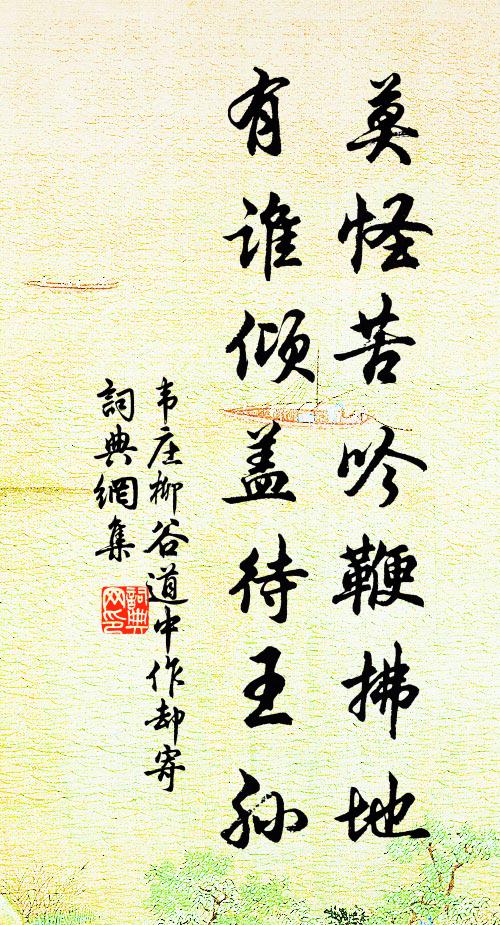 莫怪苦吟鞭拂地
有谁倾盖待王孙
韦庄柳谷道中作却寄
詞典網集
詞典网印